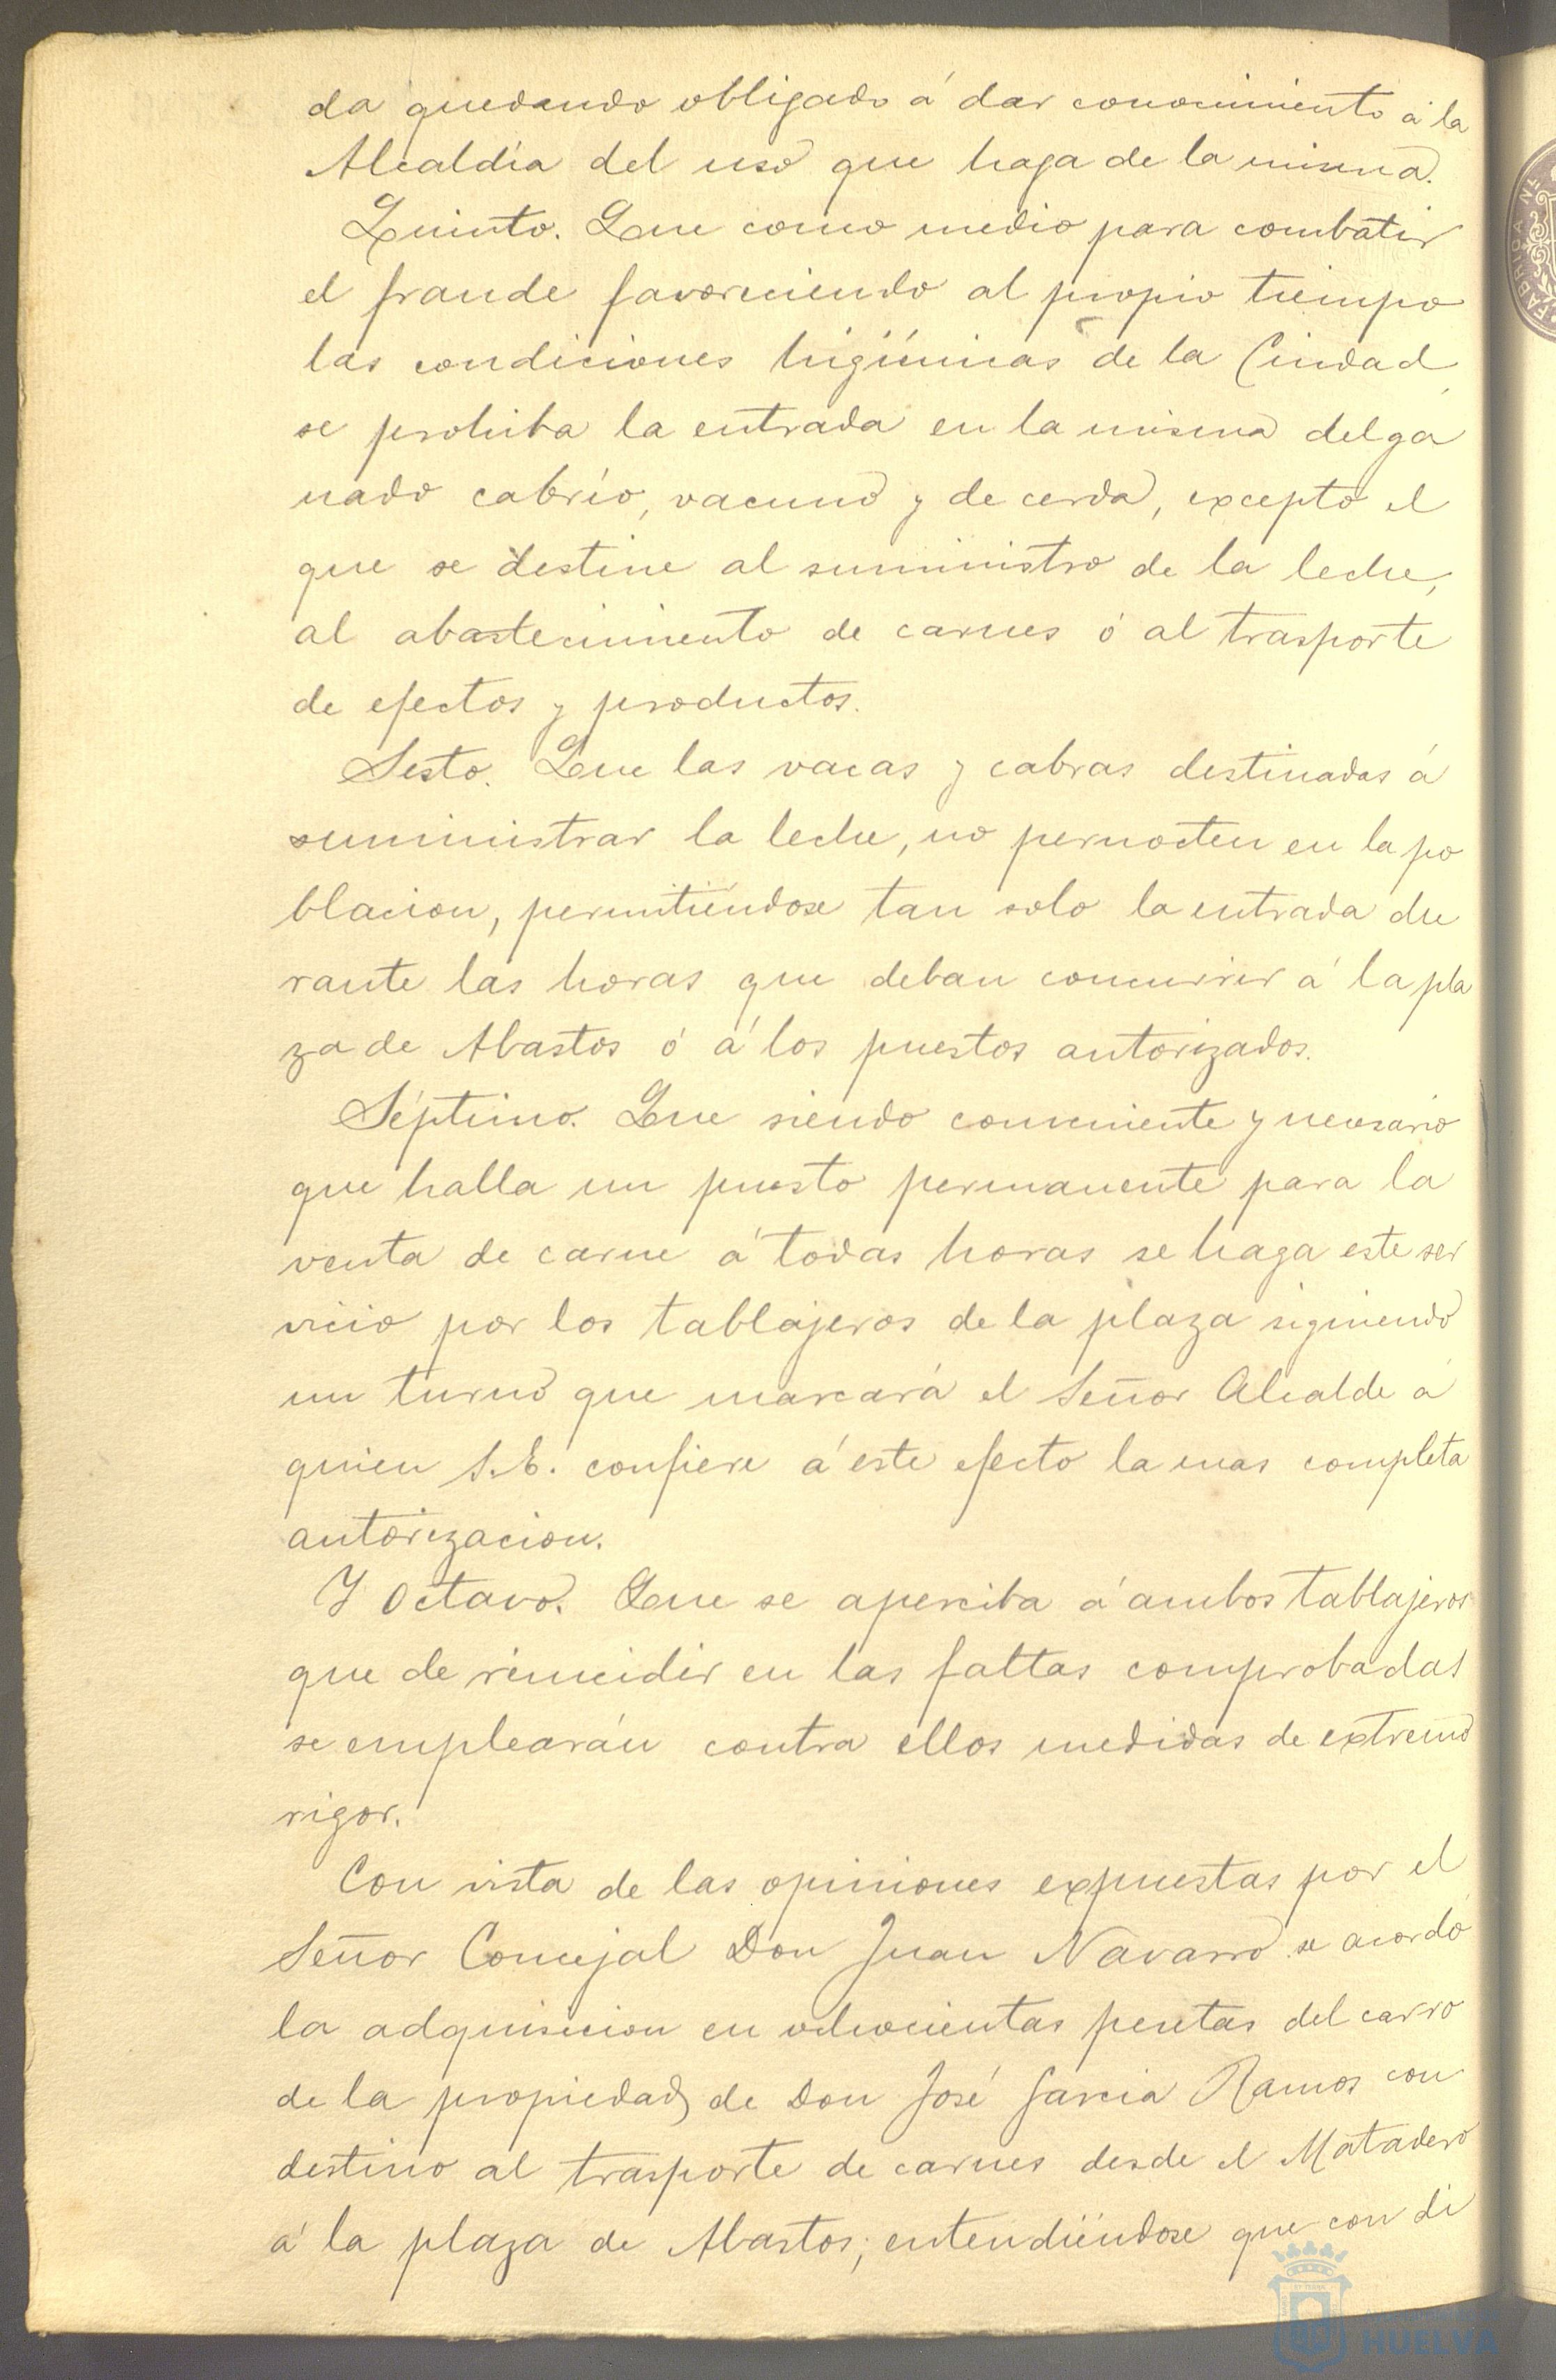 da quedando obligado á dar conocimiento á la
Alcaldía del uso que haga de la misma.
Quinto. Que como medio para combatir
el fraude favoreciendo al propio tiempo
las condiciones higiénicas de la Ciudad,
se prohiba la entrada en la misma del ga
nado cabrío, vacuno y de cerda, excepto el
que se destine al suministro de la leche,
al abastecimiento de carnes ó al trasporte
de efectos y productos.
Sesto. Que las vacas y cabras destinadas á
suministrar la leche, no pernocten en la po
blacion, permitiéndose tan solo la entrada du
rante las horas que deban concurrir á la pla
za de Abastos ó á los puestos autorizados.
Séptimo. Que siendo conveniente y necesario
que halla un puesto permanente para la
venta de carne á todas horas se haga este ser
vicio por los tablajeros de la plaza siguiendo
un turno que marcará el Señor Alcalde á
quien S.E. confiere á este efecto la mas completa
autorizacion.
Y Octavo. Que se aperciba á ambos tablajeros
que de reincidir en las faltas comprobadas
se emplearán contra ellos medidas de extremo
rigor.
Con vista de las opiniones expuestas por el
Señor Concejal Don Juan Navarro se acordó
la adquisicion en ochocientas pesetas del carro
de la propiedad de Don José Garcia Ramos con
destino al trasporte de carnes desde el Matadero
á la plaza de Abastos; entendiéndose que con di
HUELVA
FABRICA N